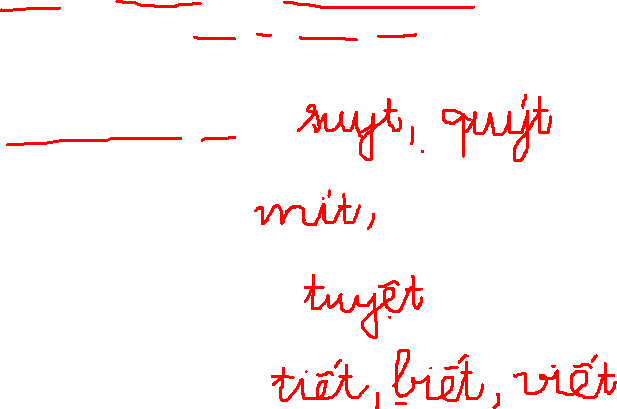 suyt, quýt
mít,
tuyệt
tiết, biết, viết